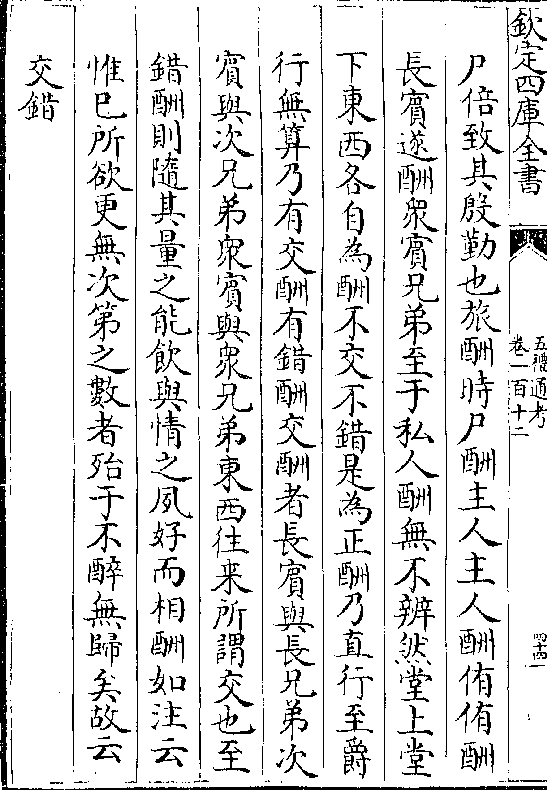 欽定四庫全書
五禮通考
卷一百十二
四十四
尸倍致其殷勤也旅酬時尸酬主人主人酬侑侑酬
長賓遂酬眾賓兄弟至于私人酬無不辨然堂上堂
下東西各自為酬不交不錯是為正酬乃直行至爵
行無算乃有交酬有錯酬交酬者長賓與長兄弟次
賓與次兄弟眾賓與眾兄弟東西往来所謂交也至
錯酬則隨其量之能飲與情之夙好而相酬如注云
惟已所欲更無次第之數者殆于不醉無歸矣故云
交錯